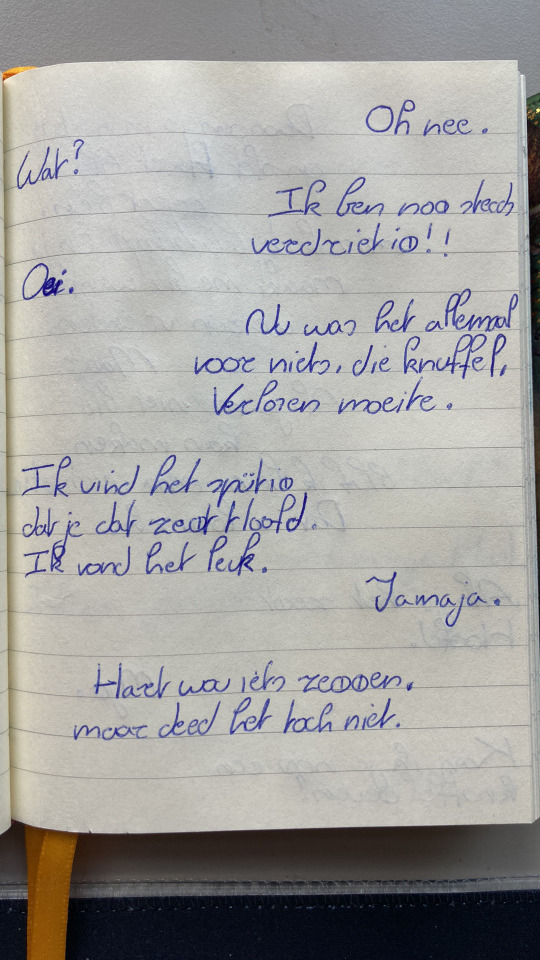 Oh nee.
Wat?
Ik ben nog steeds
verdrietig!!
Oei.
Nu was het allemaal
voor niets, die knuffel,
Verloren moeite.
Ik vind het spijtig
dat je dat zegt Hoofd.
Ik vond het leuk.
Jamaja.
Hart wou iets zeggen,
maar deed het toch niet.